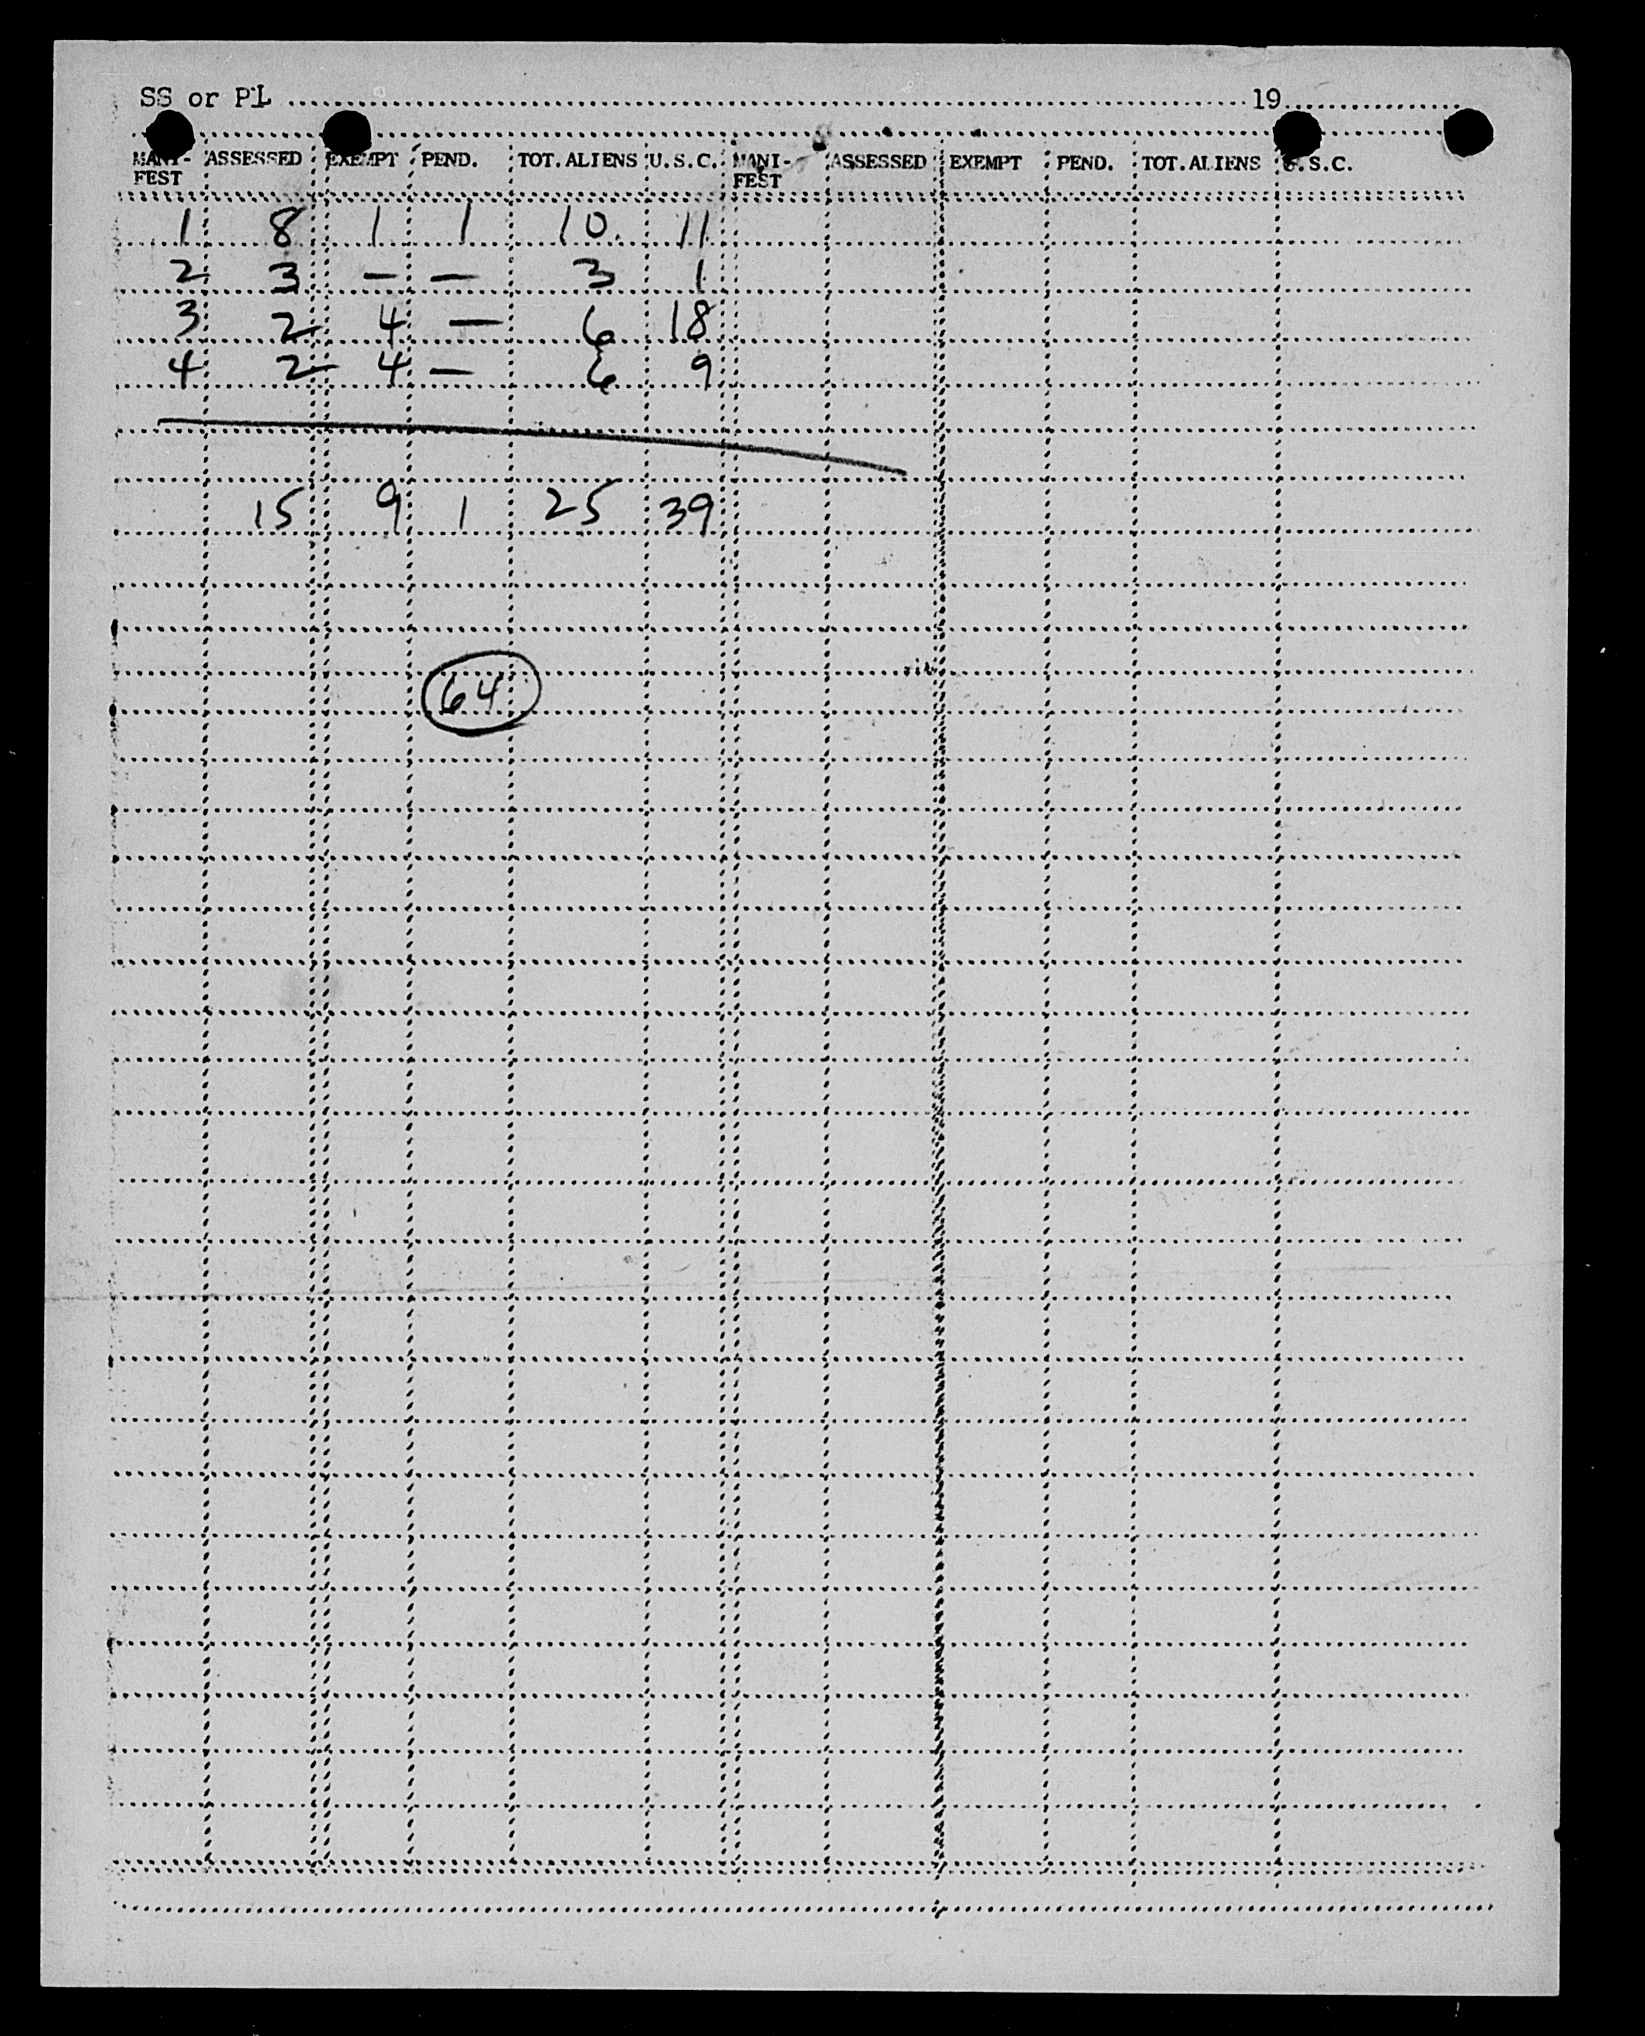 SS or PL 19
MANI- ASSESSED EXEMPT PEND. TOT. ALIENS U.S.C. MANI- ASSESSED EXEMPT PEND. TOT. ALIENS U.S.C.
FEST FEST
1 8 1 1 10 11
2 3 — — 3 1
3 2 4 — 6 18
4 2 4 — 6 9
15 9 1 25 39
64